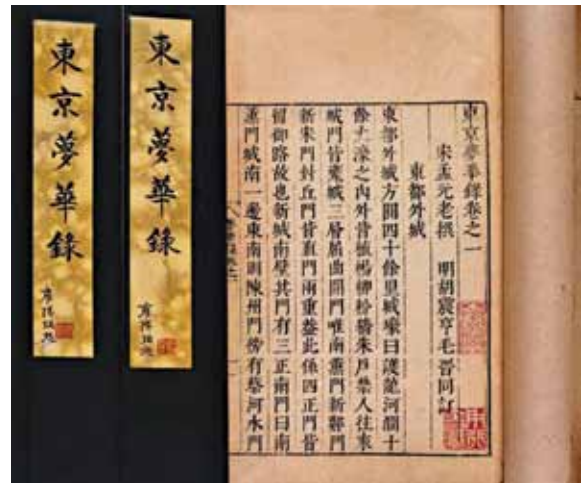 東京夢華錄卷之一
宋孟元老撰 明胡震亨毛晉同訂
東都外城
東都外城方圓四十餘里城壕曰護龍河闊十
餘丈濠之內外皆植楊柳粉牆朱戶禁人往來
城門皆甕城三層屈曲開門唯南薰門新鄭門
新宋門封丘門皆直門兩重蓋此係四正門皆
留御路故也新城南壁其門有三正南門曰南
薰門城南一邊東南則陳州門傍有蔡河水門
東京夢華錄
東京夢華錄